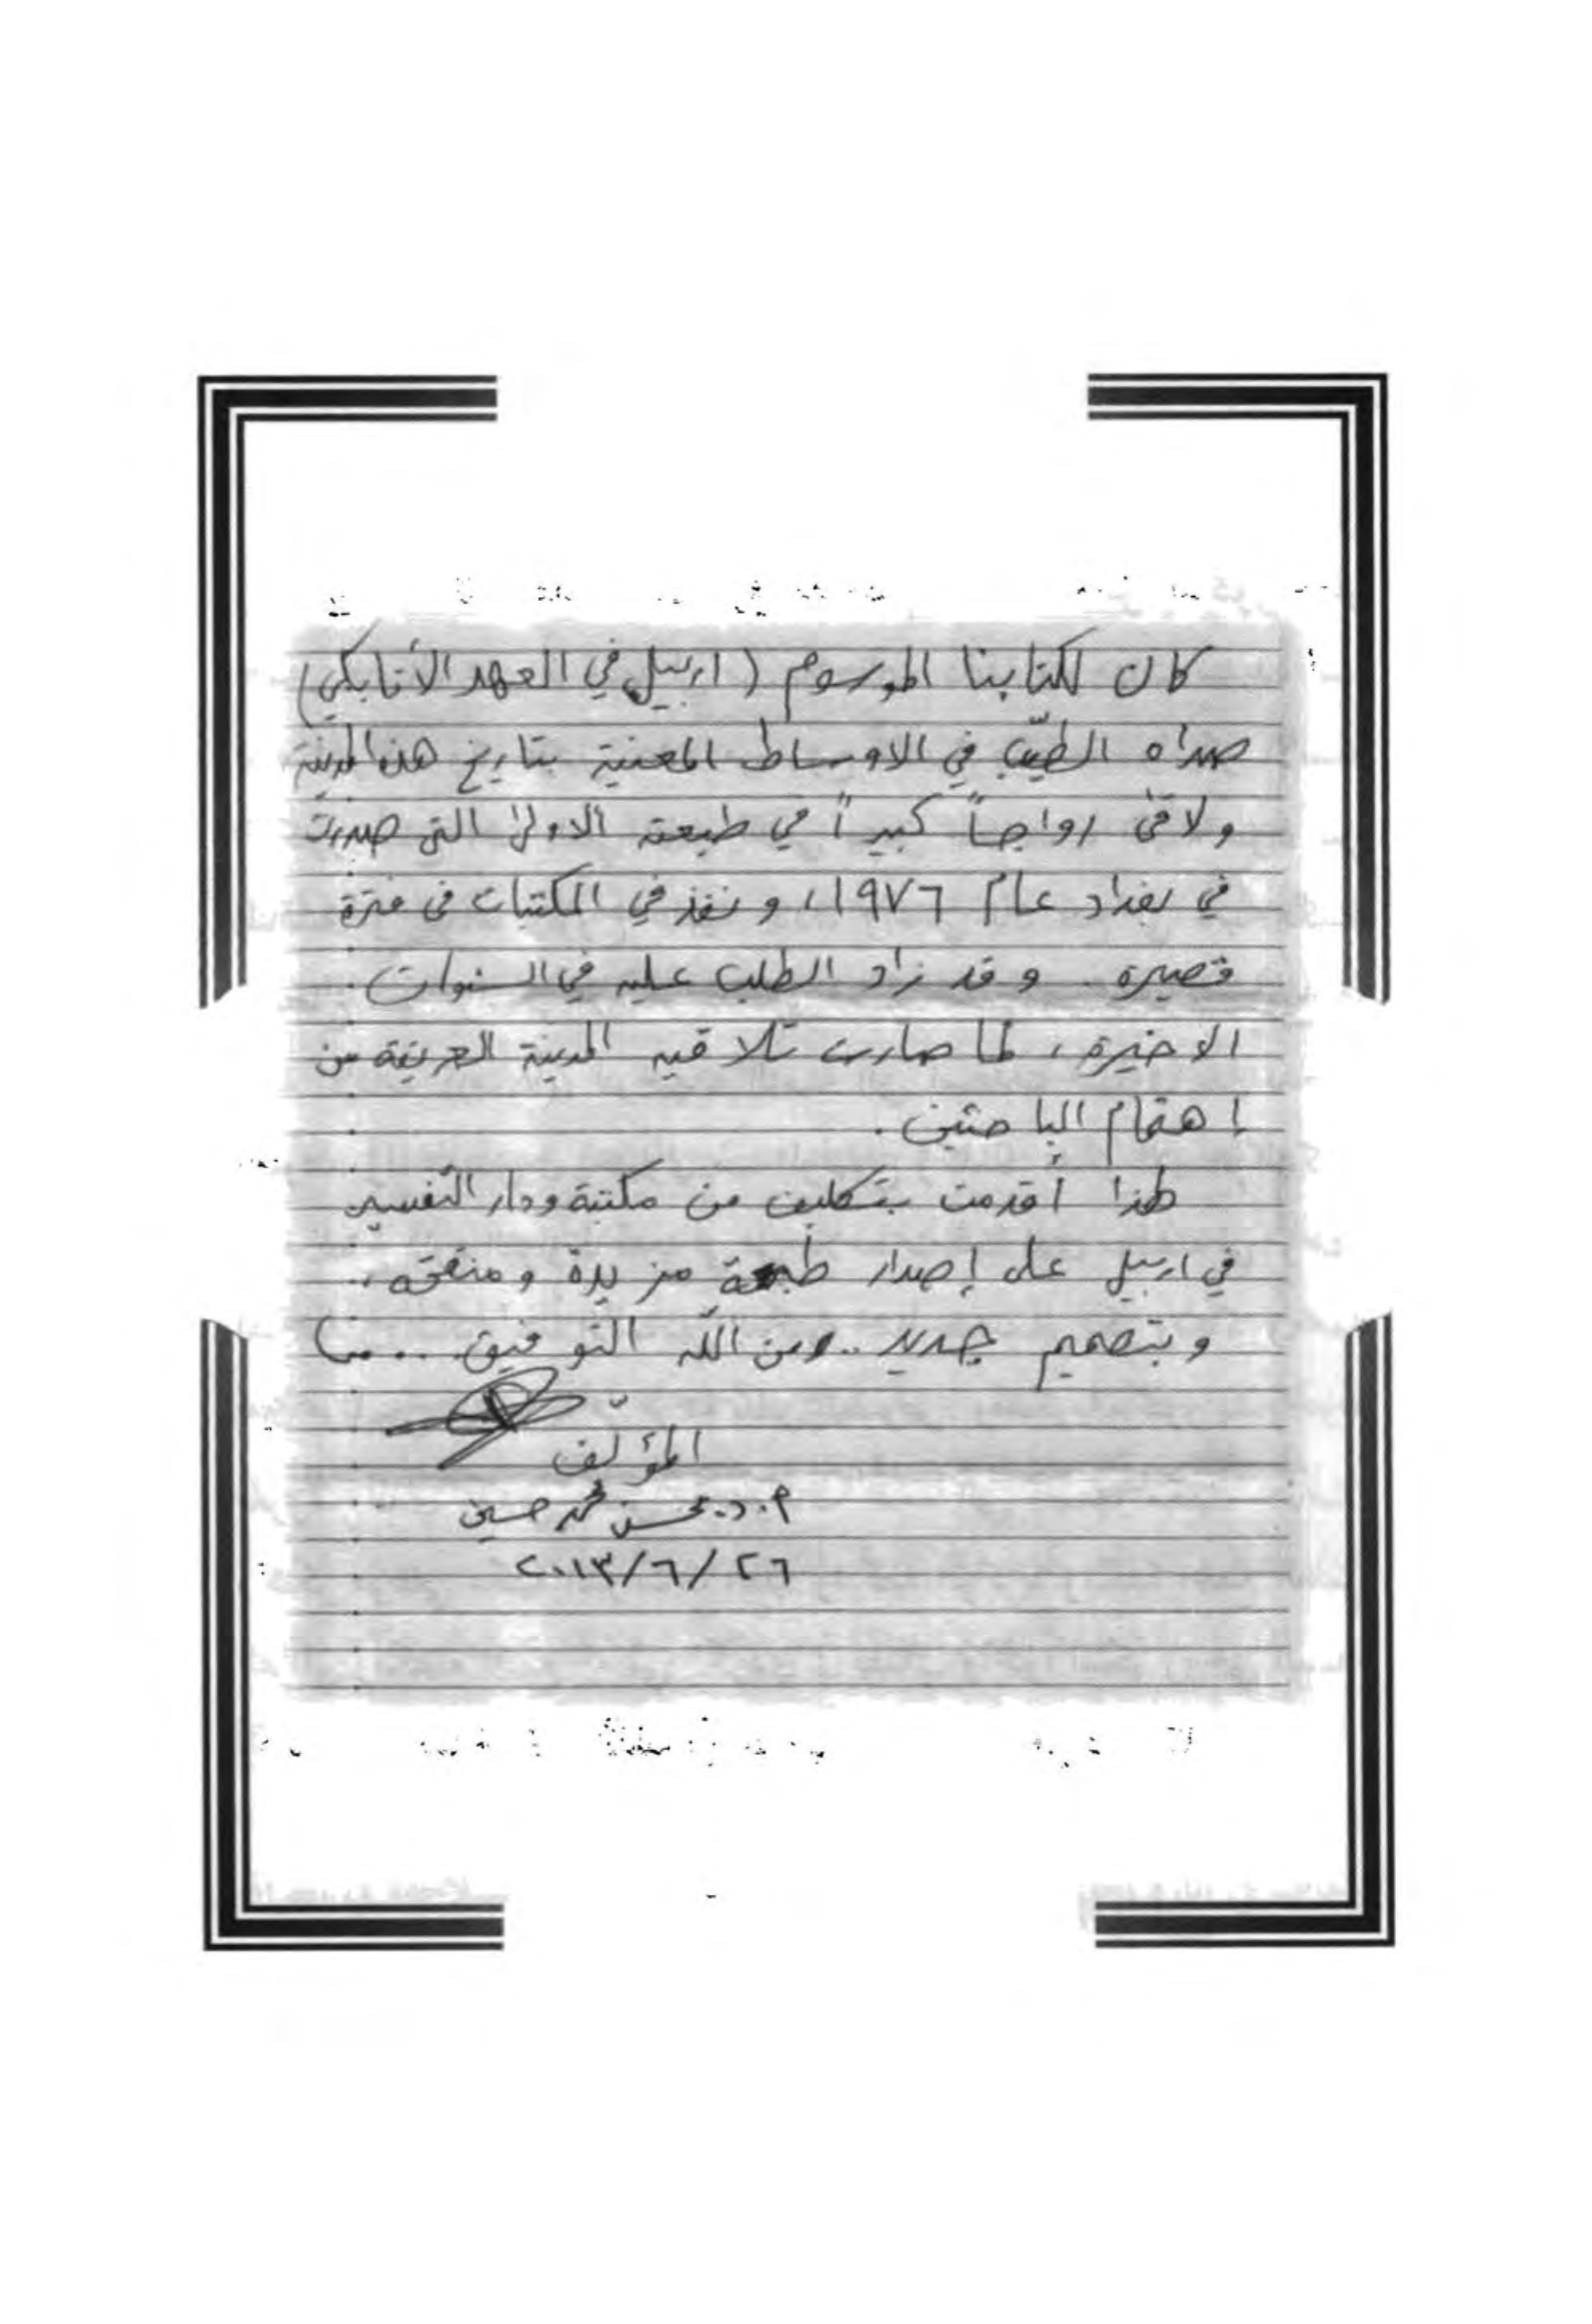 كان لكتابنا الموسوم (اربيل في العهد الأتابكي)
صداه الطيّب في الاوساط المعنية بتاريخ هذه المدينة
ولاقى رواجاً كبيراً في طبعته الاولى التي صدرت
في بغداد عام ١٩٧٦، ونفذ في المكتبات في فترة
قصيرة. وقد زاد الطلب عليه في السنوات
الاخيرة، لما صارت تلاقيه المدينة العريقة من
إهتمام الباحثين.
لهذا أقدمت بتكليف من مكتبة ودار التفسير
في اربيل على إصدار طبعة مزيدة ومنقحة،
وبتصميم جديد.. ومن الله التوفيق...
المؤلّف
أ.د. محسن محمد حسين
٢٠١٣/٦/٢٦